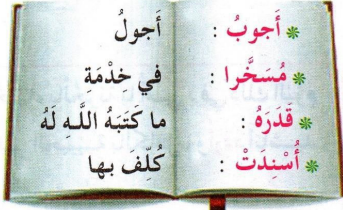 * أَجوبُ : أَجولُ
* مُسَخَّرا : في خِدْمَةِ
* قَدَرَهُ : ما كَتَبَهُ اللَّهِ لَهُ
* أُسْنِدَتْ : كُلِّفَ بها